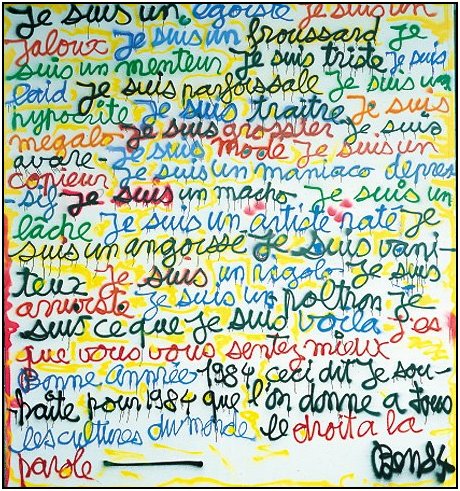 Je suis un égoïste Je suis un
jaloux Je suis un froussard Je
suis un menteur Je suis triste Je suis
laid Je suis parfois sale Je suis un
hypocrite Je suis traître Je suis
megalo Je suis grossier Je suis
avare - Je suis mode Je suis un
copieur Je suis un maniaco depres
-sif Je suis un macho Je suis un
lâche Je suis un artiste raté Je
suis un angoisse Je suis vani-
teux Je suis un rigolo Je suis
arriviste Je suis un poltron Je
suis ce que Je suis voila J'es
que vous vous sentez mieux
Bonne année 1984 ceci dit Je sou-
haite pour 1984 que l'on donne a tous
les cultures du monde le droit a la
parole Ben 84